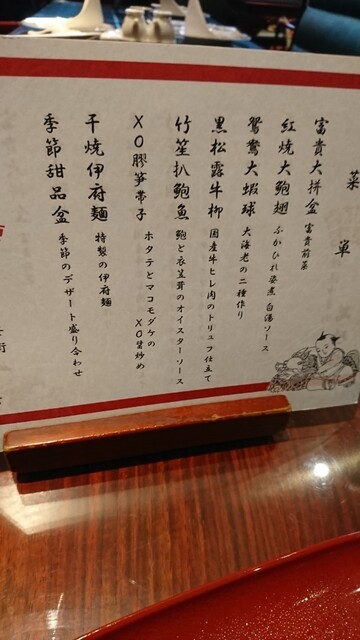 菜単
富貴大拼盆 富貴前菜
紅焼大鮑翅 ふかひれ姿煮 白湯ソース
鴛鴦大蝦球 大海老の二種作り
黒松露牛柳 国産牛ヒレ肉のトリュフ仕立て
竹笙扒鮑魚 鮑と衣笠茸のオイスターソース
XO膠笋帯子 ホタテとマコモダケのXO醤炒め
干焼伊府麺 特製の伊府麺
季節甜品盆 季節のデザート盛り合わせ